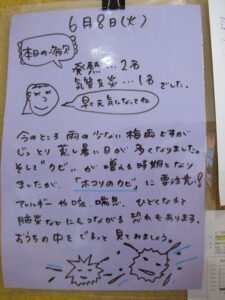 6月8日(火)
本日の病欠
発熱…2名
気管支炎…1名 でした。
早く元気になってね
今のところ 雨の少ない 梅雨ですが
じっとり 蒸し暑い日が 多くなりました。
そして"カビ"が 増える時期となり
ましたが、"ホコリのカビ"に要注意!
アレルギーや咳、喘息、ひどくなると
肺炎などにもつながる 恐れもあります。
おうちの中を ぐるっと 見てみましょう。